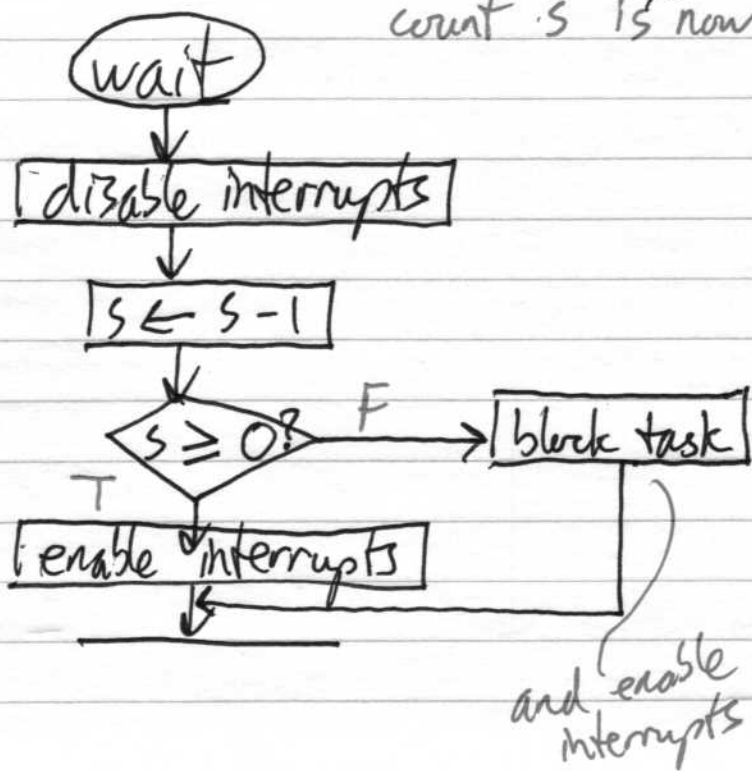 count s is now
wait
disable interrupts
s ← s - 1
s ≥ 0?
F
block task
T
enable interrupts
and enable
interrupts